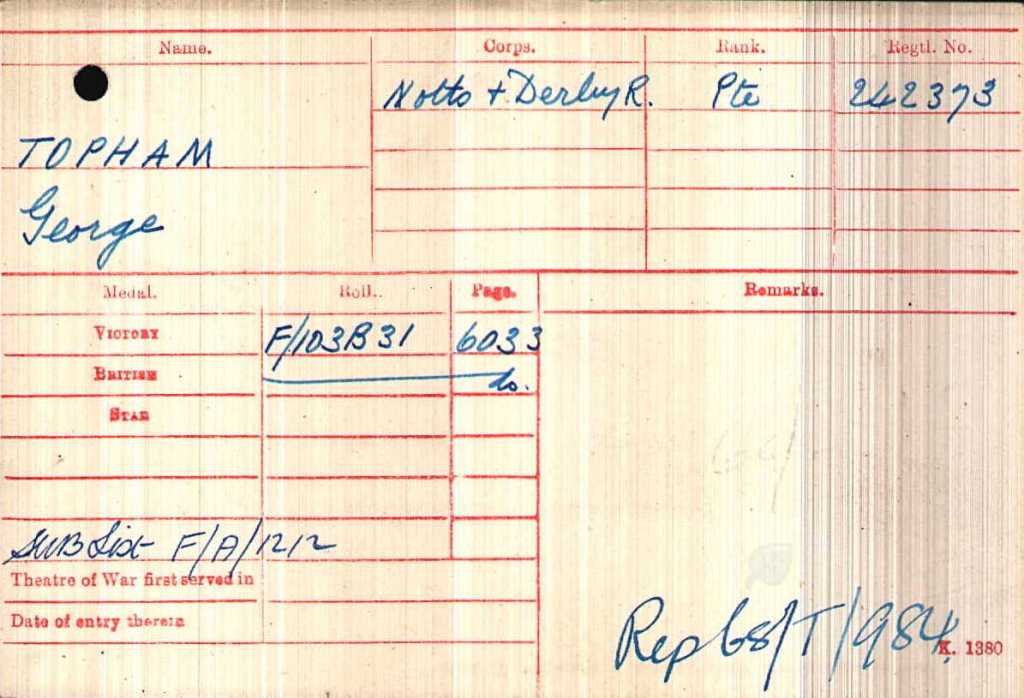 Name. Corps. Rank. Regtl. No.
Notts + Derby R. Pte 242373
TOPHAM
George
Medal. Roll. Page. Remarks.
VICTORY F/103B31 6033
BRITISH do.
STAR
SWB List F/A/1212
Theatre of War first served in
Date of entry therein
Rep 68/T/984
K. 1380